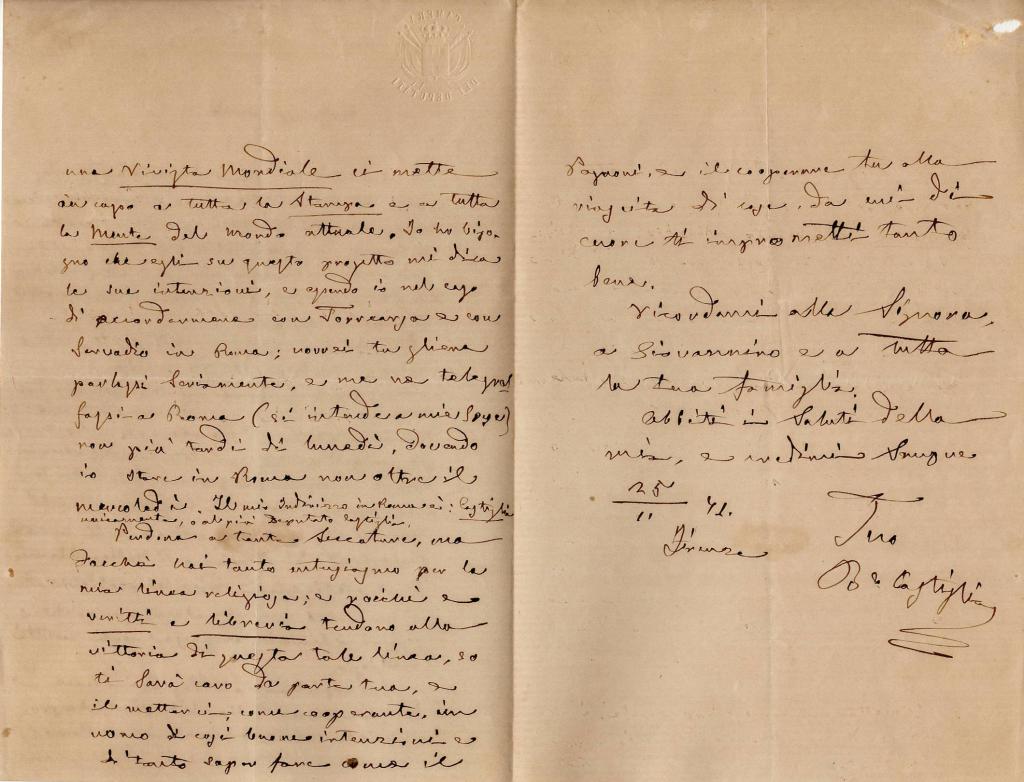 CAMERA DEI DEPUTATI
una Rivista Mondiale ci mette
in capo a tutta la Stampa e a tutta
la Mente del mondo attuale. Io ho biso-
gno che egli su questo progetto mi dica
le sue intenzioni, e quando io nel caso
di accordarmene con Torrearsa e con
Servadio in Roma; vorrei tu gliene
parlassi seriamente, e me ne telegra
fassi a Roma (si intende a mie spese)
non più tardi di lunedì, dovendo
io stare in Roma non oltre il
mercoledì. Il mio indirizzo in Roma è: Castiglia
unicamente, o al più Deputato Castiglia.
Perdona a tante seccature, ma
giacchè hai tanto entusiasmo per la
mia linea religiosa; e poiché e
scritti e libreria tendono alla
vittoria di questa tale linea, so
ti sarà caro da parte tua, e
il metterci, come cooperante, un
uomo di così buone intenzioni e
di tanto saper fare come il
Pagnoni, e il cooperare tu alla
riuscita di cose, da cui di
cuore ti imprometti tanto
bene.
Ricordami alla Signora,
a Giovannino e a tutta
la tua famiglia.
Abbiti i saluti della
mia, e credimi sempre
25
11 71.
Firenze
Tuo
B.to Castiglia